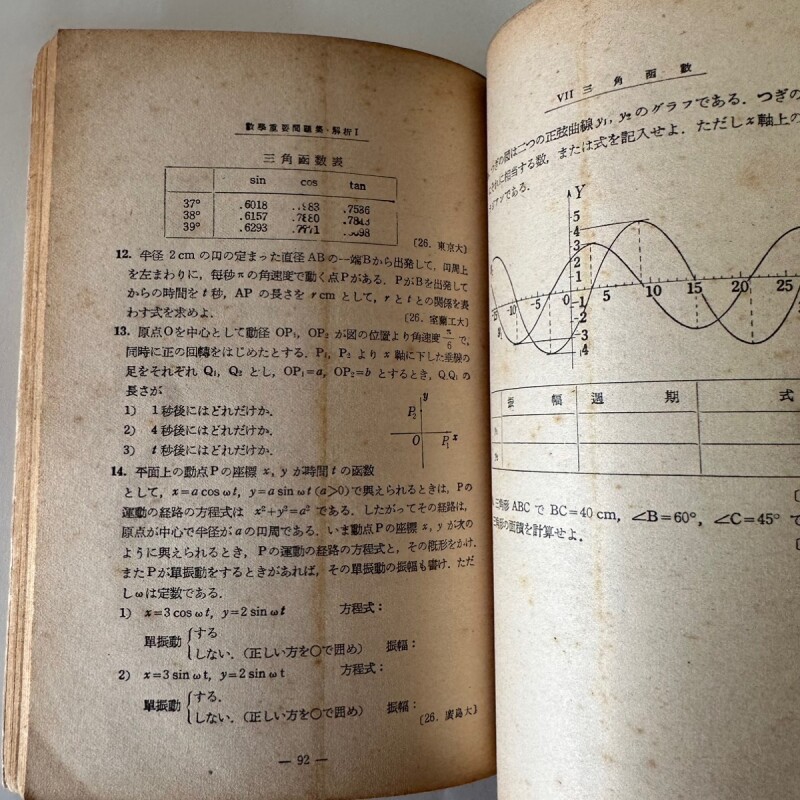 數學重要問題集・解析 I
三角函数表
sin cos tan
37° .6018 .7536
38° .6157 .7880
39° .6293
〔26. 東京大〕
12. 半径 2cm の円の定まった直径 AB の一端Bから出発して, 円周上
を左まわりに, 毎秒πの角速度で動く点Pがある. PがBを出発して
からの時間を t 秒, AP の長さを r cm として, r と t との関係を表
わす式を求めよ.
〔26. 室蘭工大〕
13. 原点Oを中心として動径 OP₁, OP₂ が図の位置より角速度 π/6 で,
同時に正の回轉をはじめたとする. P₁, P₂ より x 軸に下した垂線の
足をそれぞれ Q₁, Q₂ とし, OP₁=a, OP₂=b とするとき, Q₁Q₂ の
長さが
1) 1秒後にはどれだけか.
2) 4秒後にはどれだけか.
3) t秒後にはどれだけか.
y
P₂
O P₁ x
14. 平面上の動点Pの座標 x, y が時間 t の函数
として, x=a cos ωt, y=a sin ωt (a>0) で與えられるときは, Pの
運動の経路の方程式は x²+y²=a² である. したがってその経路は,
原点が中心で半径がaの円周である. いま動点Pの座標 x, y が次の
ように與えられるとき, Pの運動の経路の方程式と, その概形をかけ.
またPが單振動をするときがあれば, その單振動の振幅も書け. ただ
しωは定数である.
1) x=3 cos ωt, y=2 sin ωt 方程式:
單振動 { する
しない. (正しい方を○で囲め) 振幅:
2) x=3 sin ωt, y=2 sin ωt 方程式:
單振動 { する.
しない. (正しい方を○で囲め) 振幅:
〔26. 廣島大〕
— 92 —
VII 三角函數
の図は二つの正弦曲線 y₁, y₂ のグラフである. つぎの
に相当する数, または式を記入せよ. ただし x 軸上の
である.
Y
5
4
3
2
1
-5 0 5 10 15 20 25
-1
-2
3
4
振幅 週期 式
三角形 ABC で BC=40 cm, ∠B=60°, ∠C=45° で
三角形の面積を計算せよ.